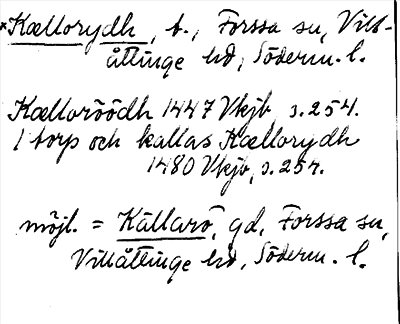 *Kællorydh, t., Forssa sn, Vill-
åttinge hd, Söderm. l.
Kælloröödh 1447 Vkjb, s. 254.
1 torp och kallas Kællorydh
1480 Vkjb, s. 254.
möjl. = Källarö, gd, Forssa sn,
Villåttinge hd, Söderm. l.